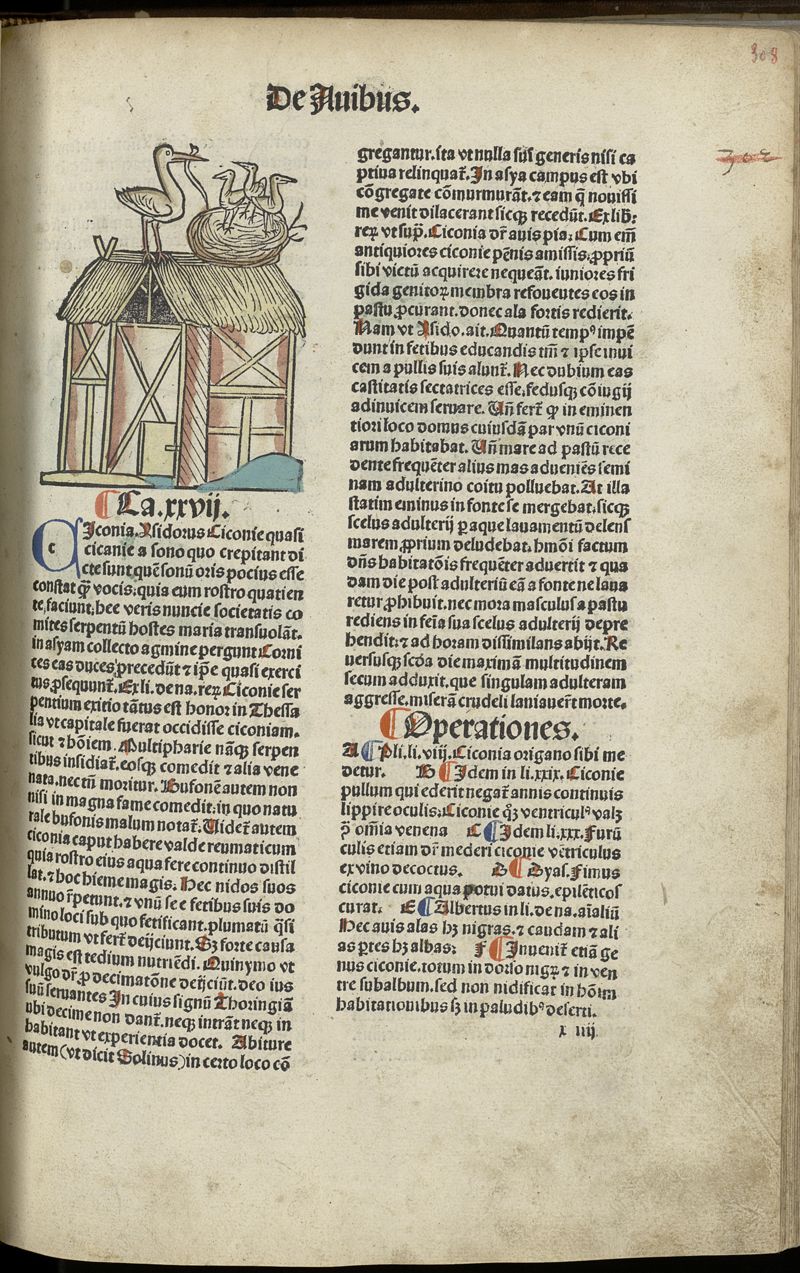 308
De Auibus.
302
Ca.xxvij.
CIconia. Isidorus Ciconie quasi
cicanie a sono quo crepitant di
cte sunt. quē sonū oris pocius esse
constat ꝙ̃ vocis. quia eum rostro quatien
te. faciunt. hee veris nuncie societatis co
mites serpentū hostes maria transuolāt.
in asyam collecto agmine pergunt. Corni
ces eas duces precedūt ⁊ ip̄e quasi exerci
tus ꝓsequunt̄. Ex li. de na. reꝝ Ciconie ser
pentium exitio tātus est honor in Thessa
lia vt capitale fuerat occidisse ciconiam.
sicut ⁊ hoīem. Multipharie nāꝙ serpen
tibus insidiat̄. eosꝙ comedit ⁊ alia vene
nata. nec tn̄ moritur. Bufonē autem non
nisi in magna fame comedit. in quo natu
rale bufonis malum notat̄. Uidet̄ autem
ciconia caput habere valde reumaticum
quia rostro eius aqua fere continuo distil
lat. ⁊ hoc hieme magis. Hec nidos suos
annuo r̄petunt. ⁊ vnū se e fetibus suis do
mino loci sub quo fetificant. plumatū q̄si
tributum vt fert̄ deijciunt. Sꝫ forte causa
magis est tedium nutriēdi. Quinymo vt
vulgo dr̄ ꝓ decimatōne deijciūt. deo ius
suū seruantes In cuius signū Thoringiā
ubi decime non dant̄. neqꝫ intrāt neqꝫ in
habitant vt experientia docet. Abiture
autem (vt dicit Solinus) in certo loco cō
gregantur. ita vt nulla sui generis nisi ca
ptiua relinquat̄. In asya campus est vbi
cōgregate cōmurmurāt. ⁊ eam q̄ nouissi
me venit dilacerant sicqꝫ recedūt. Ex lib.
reꝝ vt sup̄. Ciconia dr̄ auis pia. Cum em̄
antiquiores ciconie pēnis amissis. ꝓpriū
sibi victū acquirere nequeāt. iuniores fri
gida genitoꝝ membra refouentes eos in
pastu ꝓcurant. donec ala fortis redierit.
Nam vt Isido. ait. Quantū tempꝰ impē
dunt in fetibus educandis tm̄ ⁊ ipse inui
cem a pullis suis alunt̄. Nec dubium eas
castitatis sectatrices esse. fedusqꝫ cōiugij
adinuicem seruare. Un̄ fert̄ ꝙ in eminen
tiori loco domus cuiusdā par vnū ciconi
arum habitabat. Un̄ mare ad pastū rece
dente frequēter alius mas adueniēs femi
nam adulterino coitu polluebat. At illa
statim eminus in fonte se mergebat. sicqꝫ
scelus adulterij ꝑ aque lauamentū delens
marem ꝓprium deludebat. hmōi factum
dn̄s habitatōis frequēter aduertit ⁊ qua
dam die post adulteriū eā a fonte ne laua
retur ꝓhibuit. nec mora masculus a pastu
rediens in feīa sua scelus adulterij depre
hendit. ⁊ ad horam dissimilans abijt. Re
uersusqꝫ scd̄a die maximā multitudinem
secum adduxit. que singulam adulteram
aggresse. miserā crudeli laniauer̄t morte.
Operationes.
A Pli. li. viij. Ciconia origano sibi me
detur. B Idem in li. xxix. Ciconie
pullum qui ederit negat̄ annis continuis
lippire oculis. Ciconie q̄ꝫ ventriculꝰ valꝫ
ꝯ̄ om̄ia venena C Idem li. xxx. Furū
culis etiam dr̄ mederi ciconie vētriculus
ex vino decoctus. D Dyas. Fimus
ciconie cum aqua potui datus. epilēticos
curat. E Albertus in li. de na. aīaliū
Hec auis alas hꝫ nigras. ⁊ caudam ⁊ ali
as ꝑtes hꝫ albas. F Inuenit̄ etiā ge
nus ciconie. totum in dorso nigꝝ ⁊ in ven
tre subalbum. sed non nidificat in hōim
habitationibus sꝫ in paludibꝰ deserti.
x iiij